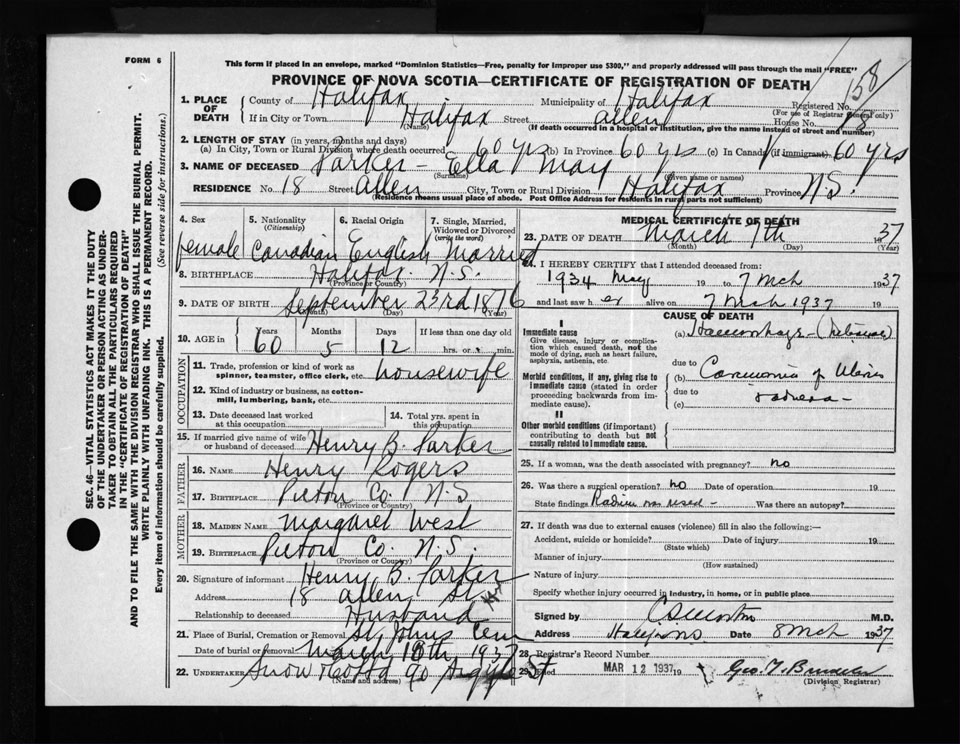 FORM 6
This form if placed in an envelope, marked "Dominion Statistics—Free, penalty for improper use $300," and properly addressed will pass through the mail "FREE"
PROVINCE OF NOVA SCOTIA—CERTIFICATE OF REGISTRATION OF DEATH
158
1. PLACE OF DEATH
County of Halifax Municipality of Halifax Registered No.
(For use of Registrar General only)
If in City or Town Halifax Street Allen House No. 18
(Name) (If death occurred in a hospital or institution, give the name instead of street and number)
2. LENGTH OF STAY (in years, months and days)
(a) In City, Town or Rural Division where death occurred 60 yrs (b) In Province 60 yrs (c) In Canada (if immigrant) 60 yrs
3. NAME OF DECEASED Parker - Ella May
(Surname) (Given name or names)
RESIDENCE No. 18 Street Allen City, Town or Rural Division Halifax Province N.S.
(Residence means usual place of abode. Post Office Address for Residents in rural parts not sufficient)
4. Sex 5. Nationality 6. Racial Origin 7. Single, Married, Widowed or Divorced
(Citizenship) (write the word)
female Canadian English Married
8. BIRTHPLACE Halifax N.S.
(Province or Country)
9. DATE OF BIRTH September 23rd 1876
(Month) (Day) (Year)
10. AGE in Years Months Days If less than one day old
60 5 12 hrs. or min.
OCCUPATION
11. Trade, profession or kind of work as spinner, teamster, office clerk, etc. housewife
12. Kind of industry or business, as cotton-mill, lumbering, bank, etc.
13. Date deceased last worked at this occupation
14. Total yrs. spent in this occupation
15. If married give name of wife or husband of deceased Henry B. Parker
FATHER
16. NAME Henry Rogers
17. BIRTHPLACE Pictou Co. N.S
(Province or Country)
MOTHER
18. MAIDEN NAME Margaret West
19. BIRTHPLACE Pictou Co. N.S.
(Province or Country)
20. Signature of informant Henry B. Parker
Address 18 Allen St.
Relationship to deceased Husband
21. Place of Burial, Cremation or Removal St. Johns Cem
Date of burial or removal March 10th 1937
22. UNDERTAKER Snow & Co Ltd 90 Argyle St
(Name and address)
MEDICAL CERTIFICATE OF DEATH
23. DATE OF DEATH March 7th 1937
(Month) (Day) (Year)
24. I HEREBY CERTIFY that I attended deceased from:
1934 May 19 to 7 Mch 1937
and last saw her alive on 7 Mch 1937 19
CAUSE OF DEATH
I
Immediate cause
Give disease, injury or complication which caused death, not the mode of dying, such as heart failure, asphyxia, asthenia, etc.
(a) Haemorrhage
due to
Morbid conditions, if any, giving rise to immediate cause (stated in order proceeding backwards from immediate cause).
(b) Carcinoma of Uterus
due to
(c)
II
Other morbid conditions (if important) contributing to death but not causally related to immediate cause.
25. If a woman, was the death associated with pregnancy? no
26. Was there a surgical operation? no Date of operation 19
State findings Radium was used - Was there an autopsy?
27. If death was due to external causes (violence) fill in also the following:—
Accident, suicide or homicide? Date of injury 19
(State which)
Manner of injury
(How sustained)
Nature of injury
Specify whether injury occurred in industry, in home, or in public place
Signed by M.D.
Address Date 8 Mch 1937
28. Registrar's Record Number
29. Filed MAR 12 1937 19 Geo. T.
(Division Registrar)
SEC. 46—VITAL STATISTICS ACT MAKES IT THE DUTY OF THE UNDERTAKER OR PERSON ACTING AS UNDERTAKER TO OBTAIN ALL THE PARTICULARS REQUIRED IN THE "CERTIFICATE OF REGISTRATION OF DEATH" AND TO FILE THE SAME WITH THE DIVISION REGISTRAR WHO SHALL ISSUE THE BURIAL PERMIT.
WRITE PLAINLY WITH UNFADING INK. THIS IS A PERMANENT RECORD.
Every item of information should be carefully supplied. (See reverse side for instructions.)